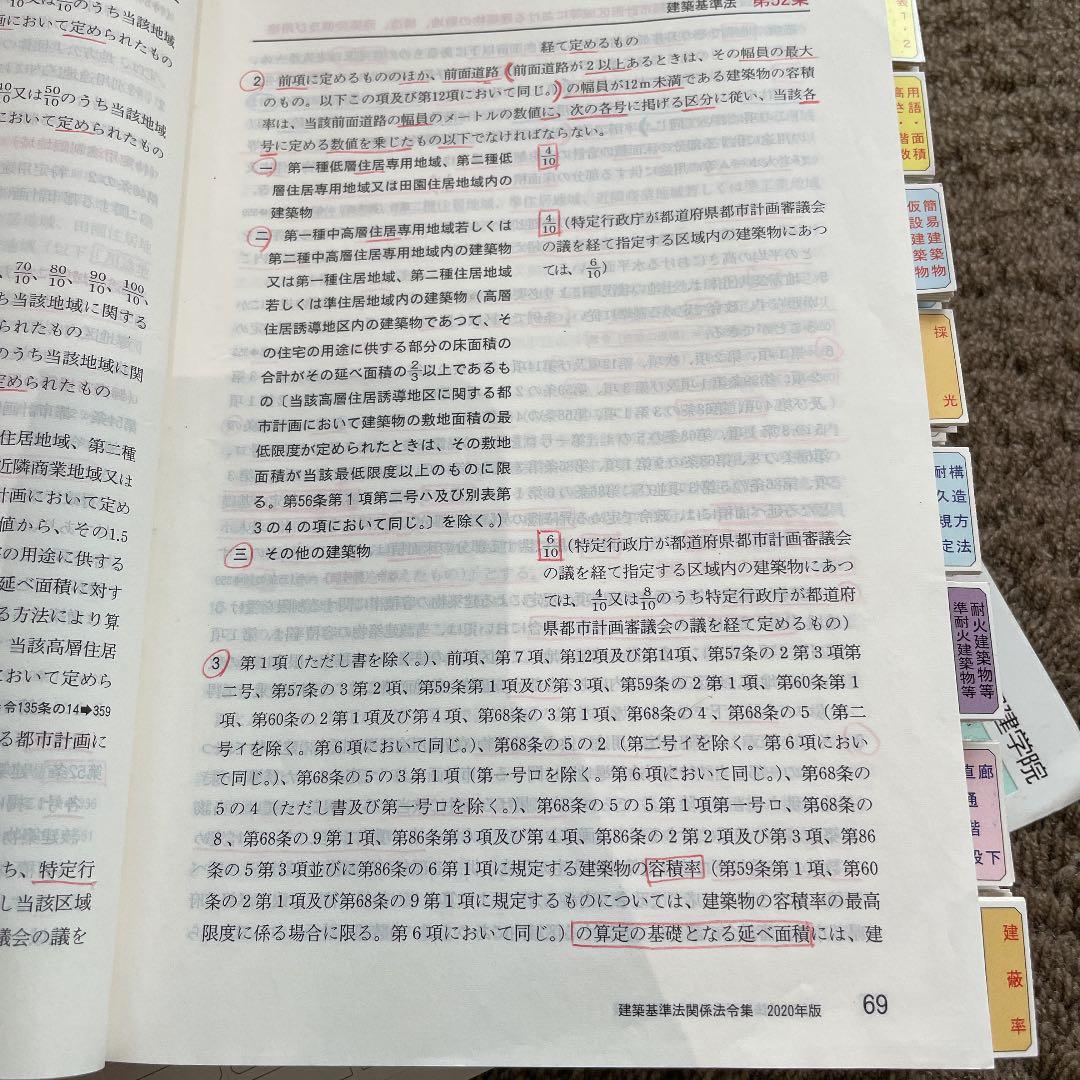 のうち当該地域
において定められたもの
又は50/10のうち当該地域
において定められたもの
70/10、80/10、90/10、100/10、
ち当該地域に関する
られたもの
のうち当該地域に関
定められたもの
住居地域、第二種
近隣商業地域又は
計画において定め
値から、その1.5
の用途に供する
延べ面積に対す
る方法により算
当該高層住居
において定めら
令135条の14➡359
る都市計画に
ち、特定行
し当該区域
議会の議を
建築基準法 第52条
経て定めるもの
2 前項に定めるもののほか、前面道路(前面道路が2以上あるときは、その幅員の最大
のもの。以下この項及び第12項において同じ。)の幅員が12m未満である建築物の容積
率は、当該前面道路の幅員のメートルの数値に、次の各号に掲げる区分に従い、当該各
号に定める数値を乗じたもの以下でなければならない。
一 第一種低層住居専用地域、第二種低 4/10
層住居専用地域又は田園住居地域内の
建築物
二 第一種中高層住居専用地域若しくは 4/10(特定行政庁が都道府県都市計画審議会
第二種中高層住居専用地域内の建築物 の議を経て指定する区域内の建築物にあつ
又は第一種住居地域、第二種住居地域 ては、6/10)
若しくは準住居地域内の建築物(高層
住居誘導地区内の建築物であつて、そ
の住宅の用途に供する部分の床面積の
合計がその延べ面積の2/3以上であるも
の〔当該高層住居誘導地区に関する都
市計画において建築物の敷地面積の最
低限度が定められたときは、その敷地
面積が当該最低限度以上のものに限
る。第56条第1項第二号ハ及び別表第
3の4の項において同じ。〕を除く。)
三 その他の建築物 6/10(特定行政庁が都道府県都市計画審議会
の議を経て指定する区域内の建築物にあつ
ては、4/10又は8/10のうち特定行政庁が都道府
県都市計画審議会の議を経て定めるもの)
3 第1項(ただし書を除く。)、前項、第7項、第12項及び第14項、第57条の2第3項第
二号、第57条の3第2項、第59条第1項及び第3項、第59条の2第1項、第60条第1
項、第60条の2第1項及び第4項、第68条の3第1項、第68条の4、第68条の5(第二
号イを除く。第6項において同じ。)、第68条の5の2(第二号イを除く。第6項におい
て同じ。)、第68条の5の3第1項(第一号ロを除く。第6項において同じ。)、第68条の
5の4(ただし書及び第一号ロを除く。)、第68条の5の5第1項第一号ロ、第68条の
8、第68条の9第1項、第86条第3項及び第4項、第86条の2第2項及び第3項、第86
条の5第3項並びに第86条の6第1項に規定する建築物の容積率(第59条第1項、第60
条の2第1項及び第68条の9第1項に規定するものについては、建築物の容積率の最高
限度に係る場合に限る。第6項において同じ。)の算定の基礎となる延べ面積には、建
建築基準法関係法令集 2020年版 69
表1・2
用語・面積
高さ・階数
簡易建築物
仮設建築物
採光
構造方法
耐久 規定
耐火建築物等
準耐火建築物等
廊下
直通階段
建蔽率
建学院